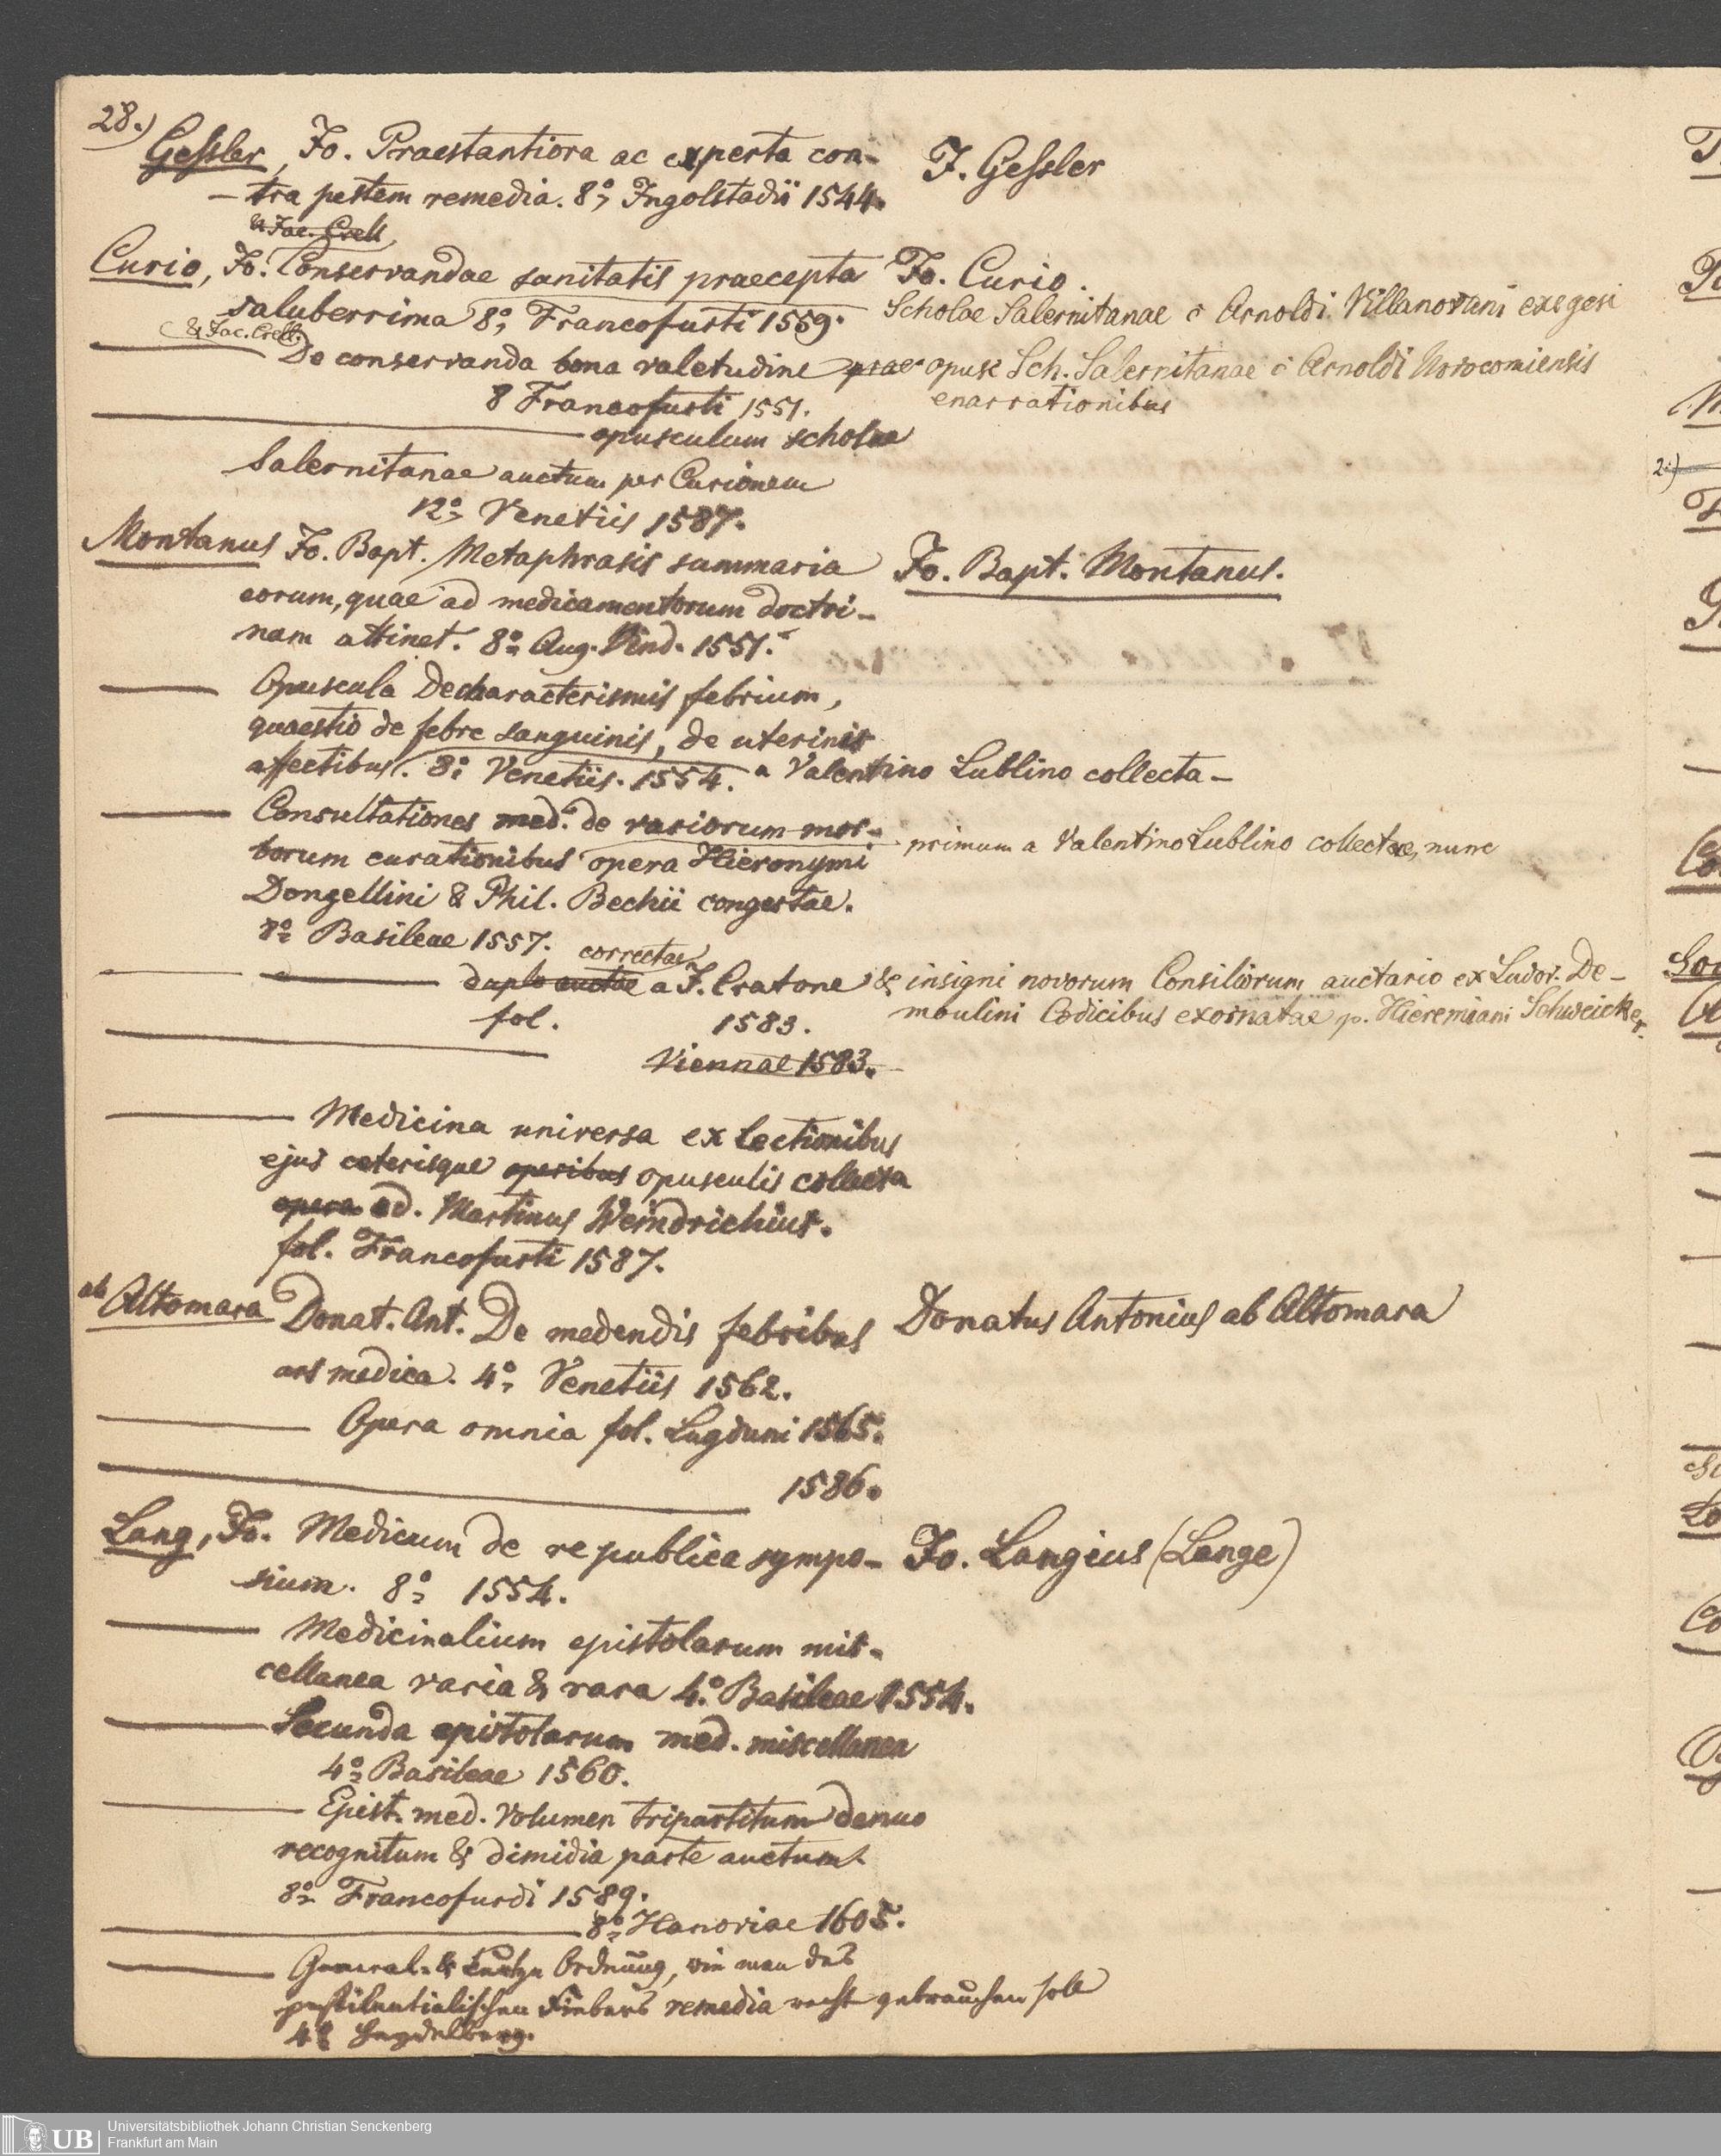 28.)
Gessler, Jo. Praestantiora ac experta con-
- tra pestem remedia. 8°, Ingolstadii 1544.
J. Gessler
& Jac. Crell
Curio, Jo. Conservandae sanitatis praecepta
saluberrima 8°, Francofurti 1559.
Jo. Curio.
Scholae Salernitanae c Arnoldi Villanovani exegesi
& Jac. Crell.
De conservanda bona valetudine prae
8 Francofurti 1551.
opusc Sch. Salernitanae c Arnoldi Novocomiensis
enarrationibus
opusculum scholae
Salernitanae auctum per Curionem
12°, Venetiis 1587.
Montanus Jo. Bapt. Metaphrasis summaria
eorum, quae ad medicamentorum doctri-
nam attinet. 8° Aug. Vind. 1551.
Jo. Bapt. Montanus.
Opuscula De characterismis febrium,
quaestio de febre sanguinis, de uterinis
affectibus. 8° Venetiis. 1554. a Valentino Lublino collecta -
Consultationes med. de variorum mor-
borum curationibus opera Hieronymi
Dongellini & Phil. Bechii congestae.
8° Basileae 1557.
primum a Valentino Lublino collectae, nunc
correctae
duplo auctae a J. Cratone & insigni novorum Consiliorum auctario ex Ludov. De-
moulini Codicibus exornatae p. Hieremiam Schweicker.
fol. 1583.
Viennae 1583.
Medicina universa ex lectionibus
ejus ceterisque operibus opusculis collecta
opera ed. Martinus Weindrichius.
fol. Francofurti 1587.
ab Altomara Donat. Ant. De medendis febribus
ars medica. 4°, Venetiis 1562.
Donatus Antonius ab Altomara
Opera omnia fol. Lugduni 1565.
1586.
Lang, Jo. Medicum de republica sympo-
sium. 8°, 1554.
Jo. Langius (Lange)
Medicinalium epistolarum mis-
cellanea varia & rara 4.° Basileae 1554.
Secunda epistolarum med. miscellanea
4°, Basileae 1560.
Epist. med. volumen tripartitum denuo
recognitum & dimidia parte auctum.
8° Francofurdi 1589.
8°, Hanoviae 1605.
General- & Kurtze Ordnung, wie man des
pestilentialischen Fiebers remedia recht gebrauchen soll
4°
2.)
UB Universitätsbibliothek Johann Christian Senckenberg
Frankfurt am Main